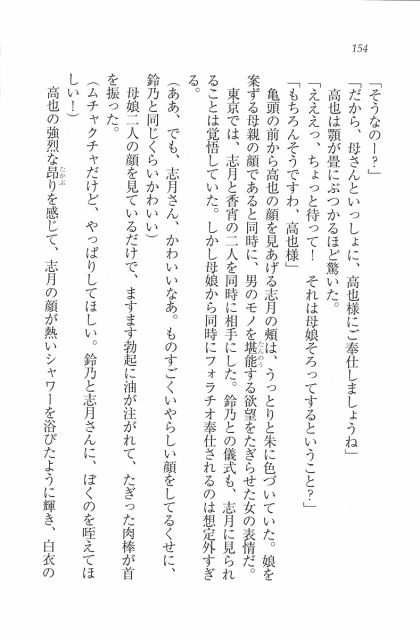 154
「そうなのー？」
「だから、母さんといっしょに、高也様にご奉仕しましょうね」
高也は顎が畳にぶつかるほど驚いた。
「えええっ、ちょっと待って！　それは母娘そろってするということ？」
「もちろんそうですわ、高也様」
亀頭の前から高也の顔を見あげる志月の頬は、うっとりと朱に色づいていた。娘を
案ずる母親の顔であると同時に、男のモノを堪能する欲望をたぎらせた女の表情だ。
東京では、志月と香宵の二人を同時に相手にした。鈴乃との儀式も、志月に見られ
ることは覚悟していた。しかし母娘から同時にフォラチオ奉仕されるのは想定外すぎ
る。
（ああ、でも、志月さん、かわいいなあ。ものすごくいやらしい顔をしてるくせに、
鈴乃と同じくらいかわいい）
母娘二人の顔を見ているだけで、ますます勃起に油が注がれて、たぎった肉棒が首
を振った。
（ムチャクチャだけど、やっぱりしてほしい。鈴乃と志月さんに、ぼくのを咥えてほ
しい！）
高也の強烈な昂りを感じて、志月の顔が熱いシャワーを浴びたように輝き、白衣の